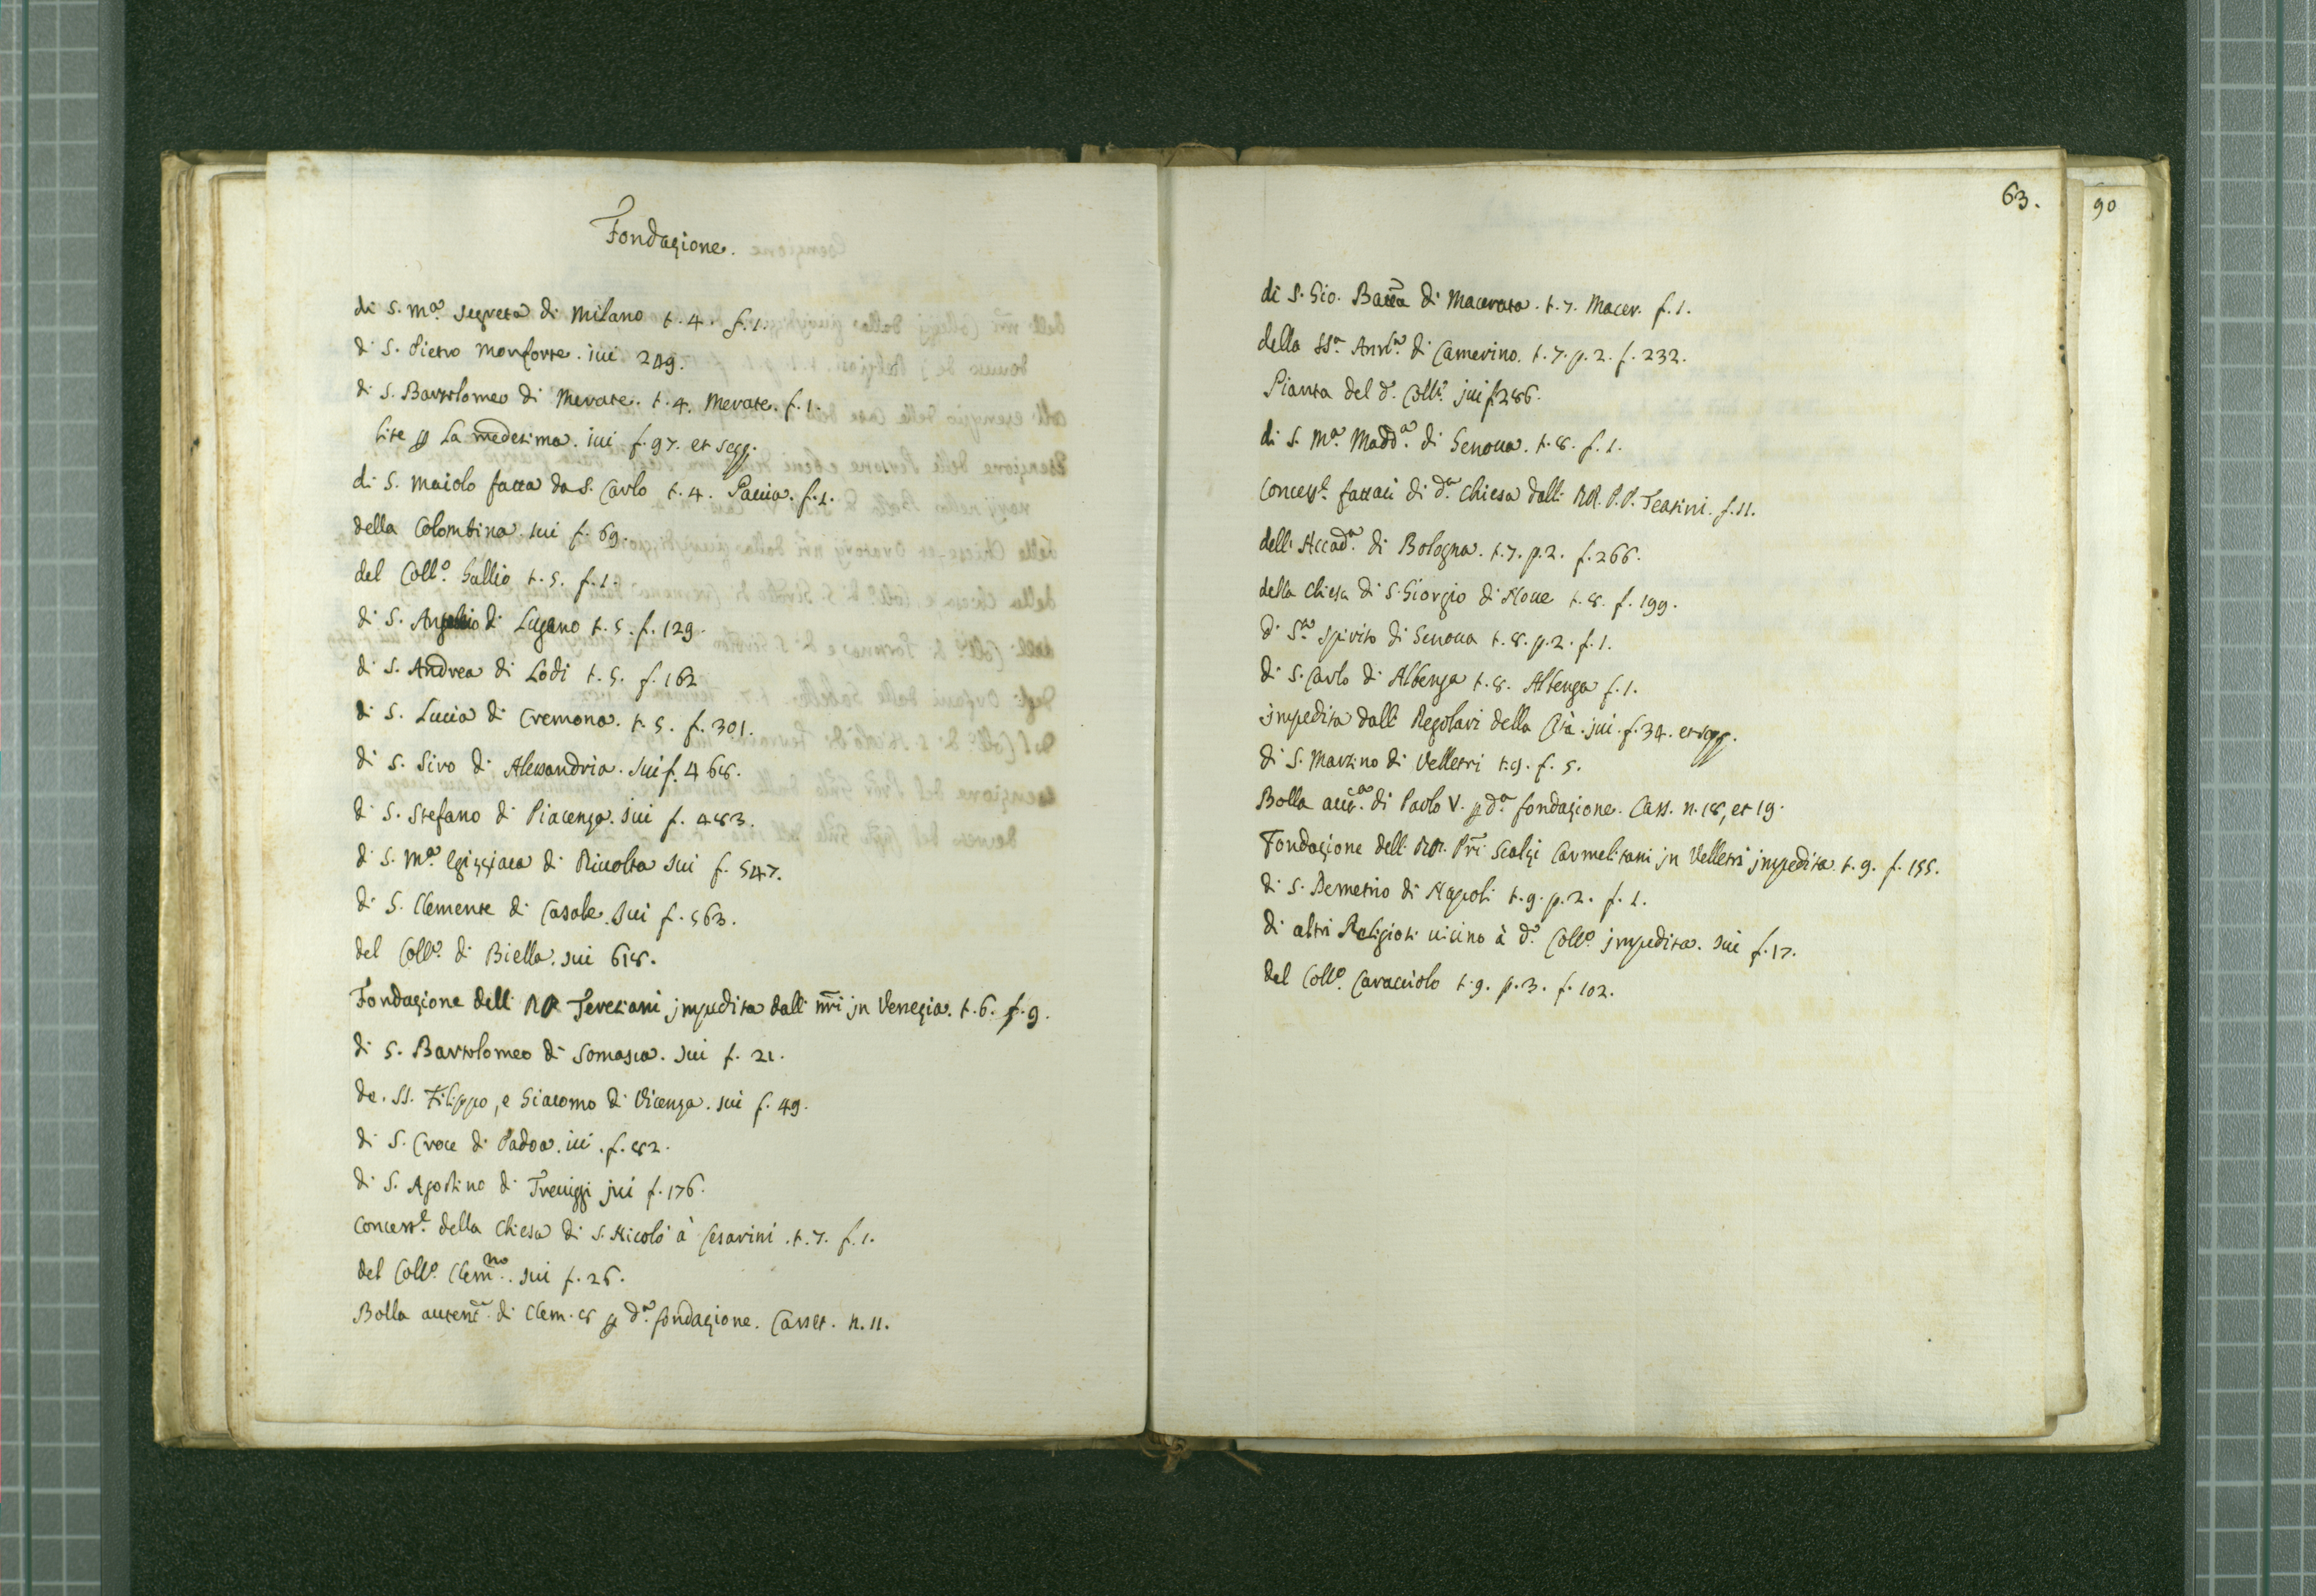 Fondazione.
di S. Mª. Segreta di Milano t. 4. f. 1.
di S. Pietro Monforte. iui 249.
di S. Bartolomeo di Merate. t. 4. Merate. f. 1.
lite p La medesima. iui f. 97. et seqq.
di S. Maiolo fatta da S. Carlo t. 4. Pauia. f. 1.
della Colombina. iui f. 69.
del Collº. Gallio t. 5. f. 1.
di S. di Lugano t. 5. f. 129.
di S. Andrea di Lodi t. 5. f. 162
di S. Lucia di Cremona. t. 5. f. 301.
di S. Siro di Alessandria. iui f. 468.
di S. Stefano di Piacenza. iui f. 483.
di S. Mª. Egizziaca di Riuolta iui f. 547.
di S. Clemente di Casale. iui f. 563.
del Collº. di Biella. iui 618.
Fondazione delli RR Teresiani impedita dalli nri in Venezia. t. 6. f. 9.
di S. Bartolomeo di Somasca. iui f. 21.
de. SS. Filippo, e Giacomo di Vicenza. iui f. 49.
di S. Croce di Padoa. iui. f. 82.
di S. Agostino di Treuiggi iui f. 176.
Concessᵉ. della Chiesa di S. Nicolò à Cesarini. t. 7. f. 1.
del Collº. Clemno. iui f. 26.
Bolla autent. di Clem. 8 p dª. fondazione. Casset. n. 11.
63.
90
di S. Gio. Batta di Macerata. t. 7. Macer. f. 1.
della SSª. Annª. di Camerino. t. 7. p. 2. f. 232.
Pianta del dº. Collº. iui f. 286.
di S. Mª. Maddª. di Genoua. t. 8. f. 1.
Concessᵉ. fattaci di dª. Chiesa dalli RR. P.P. Teatini. f. 11.
dell' Accadª. di Bologna. t. 7. p. 2. f. 266.
della Chiesa di S. Giorgio di Noue t. 8. f. 199.
di Sto Spirito di Genoua t. 8. p. 2. f. 1.
di S. Carlo di Albenga t. 8. Albenga f. 1.
impedita dalli Regolari della Cità. iui. f. 34. et seqq.
di S. Martino di Velletri t. 9. f. 5.
Bolla autª. di Paolo V. p dª. fondazione. Cass. n. 18, et 19.
Fondazione delli RR. Pri Scalzi Carmelitani in Velletri impedita. t. 9. f. 155.
di S. Demetrio di Napoli t. 9. p. 2. f. 1.
di altri Religiosi uicino à dº. Collº. impedita. iui f. 17.
del Collº. Caracciolo t. 9. p. 3. f. 102.